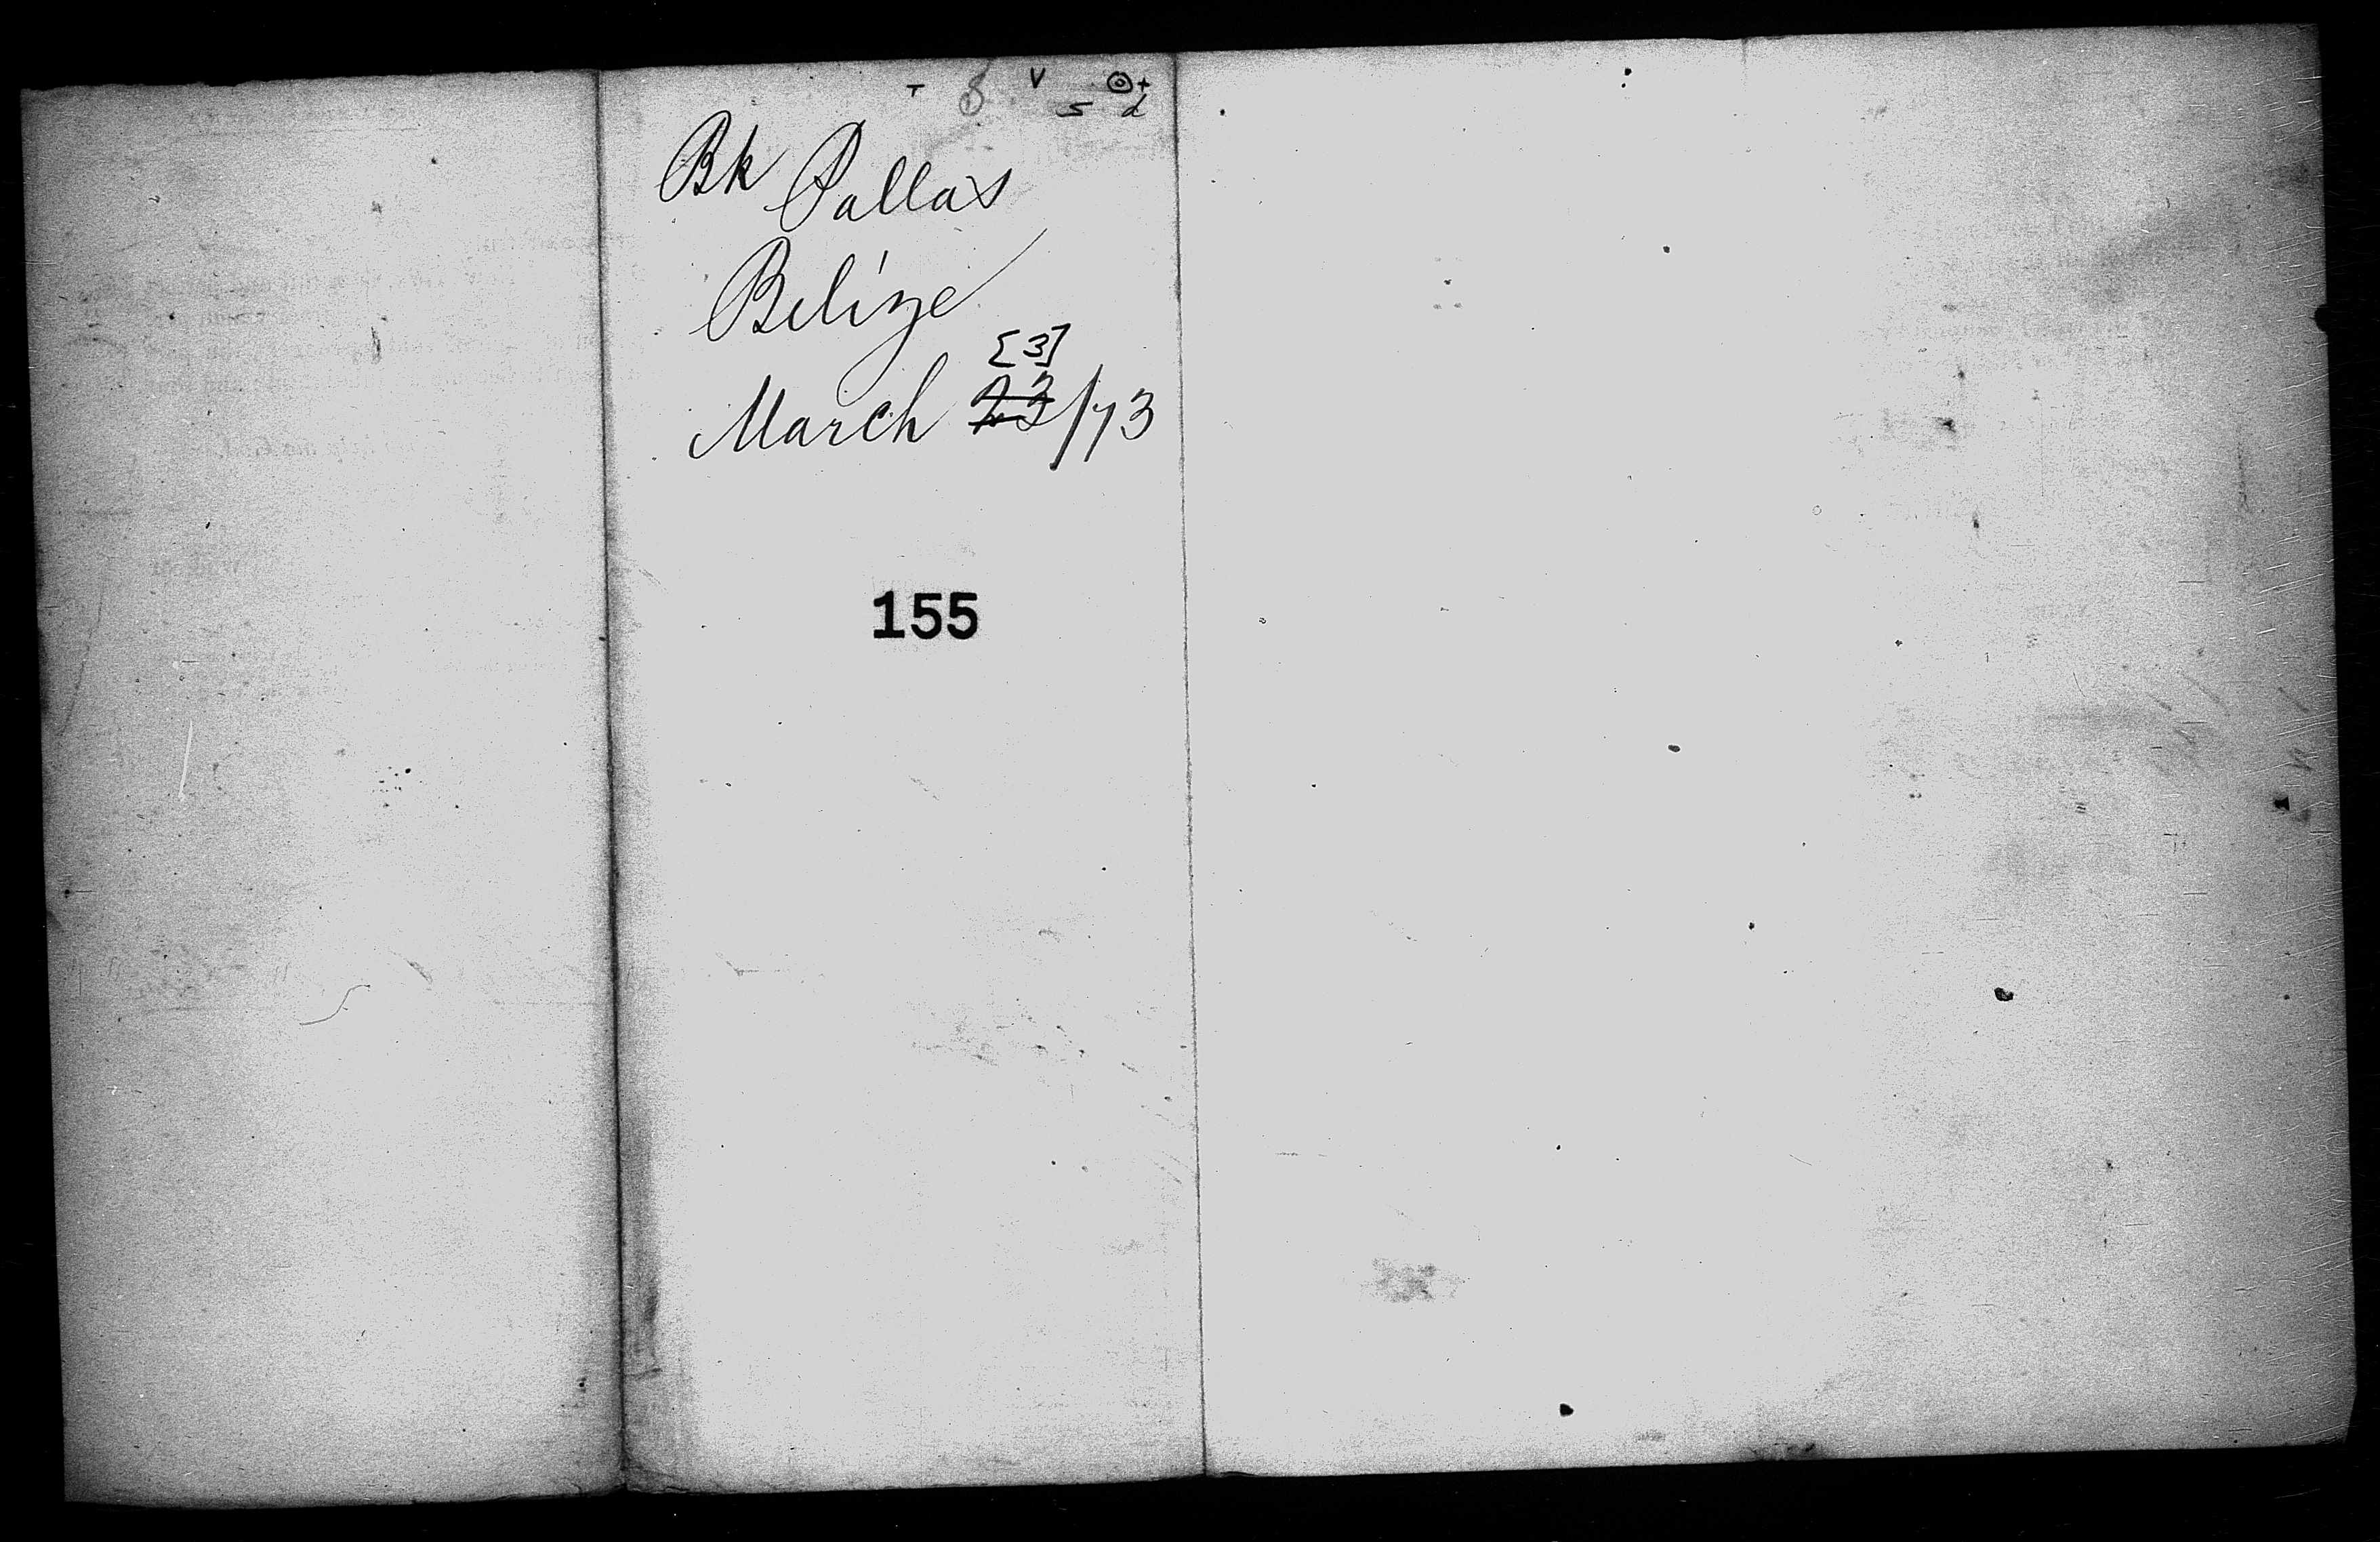 T V
S d
Bk Pallas
Belize
[3]
March 23/73
155